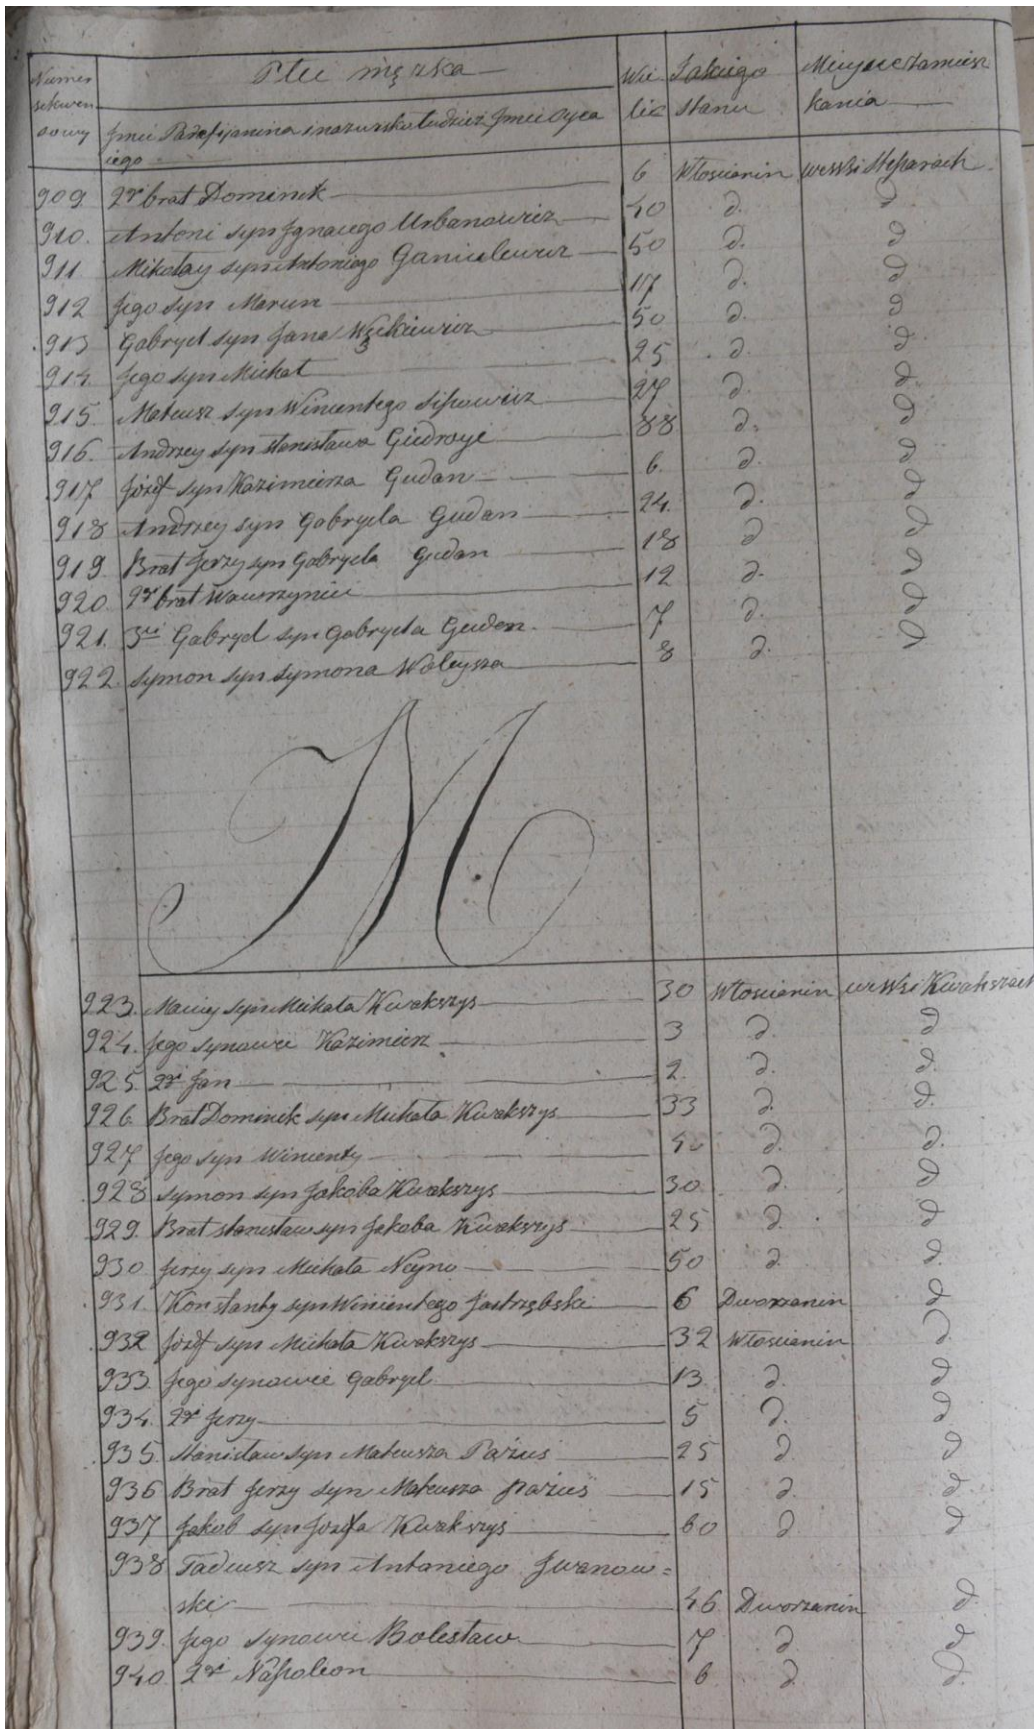 Numer Płci męzka Wie Jakiego Mieysce zamiesz
sekwen lie stanu kania
sowy Jmie Parafijanina i nazwisko tudzież Jmie Oyca
iego
909. 2gi brat Dominik 6 Włościanin we Wsi
910. Antoni syn Jgnacego Urbanowicz 40 d. d
911. Mikołay syn Antoniego Ganiulewicz 50 d. d
912 Jego syn Marcin 17 d. d
913 Gabryel syn Jana 50 d. d
914. Jego syn Michał 25 d. d.
915. Mateusz syn Wincentego Sipowicz 27 d. d
916. Andrzey syn Stanisława Giedroyć 88 d. d
917 Józef syn Kazimierza Gudan 6. d. d
918 Andrzey syn Gabryela Gudan 24. d. d
919. Brat Jerzy syn Gabryela Gudan 18 d d
920. 2gi brat Wawrzyniec 12 d. d
921. 3ci Gabryel syn Gabryela Gudan. 7 d. d
922. Symon syn Symona Woleysza 8 d. d
M
923. Maciey syn Michała Kwakszys 30 Włościanin we Wsi Kwakszach
924. Jego synowie Kazimierz 3 d. d
925. 2gi Jan 2. d. d.
926. Brat Dominik syn Michała Kwakszys 33 d. d.
927 Jego syn Wincenty d. d.
928 Symon syn Jakóba Kwakszys 30. d. d
929. Brat Stanisław syn Jakoba Kwakszys 25 d. d
930 Jerzy syn Michała 50 d. d.
931. Konstanty syn Wincientego Jastrzębski 6 Dworzanin d
932 Józef syn Michała Kwakszys 32 Włościanin d
933. Jego synowie Gabryel 13 d. d
934. 2gi Jerzy 5 d. d
935. Stanisław syn Mateusza Pażus 25 d. d
936 Brat Jerzy syn Mateusza Pażus 15 d. d.
937 Jakob syn Józefa Kwakszys 60 d d
938 Tadeusz syn Antoniego Jwanow=
ski 46 Dworzanin d
939. Jego synowie Bolesław 7 d d
940. 2gi Napoleon 6 d. d.